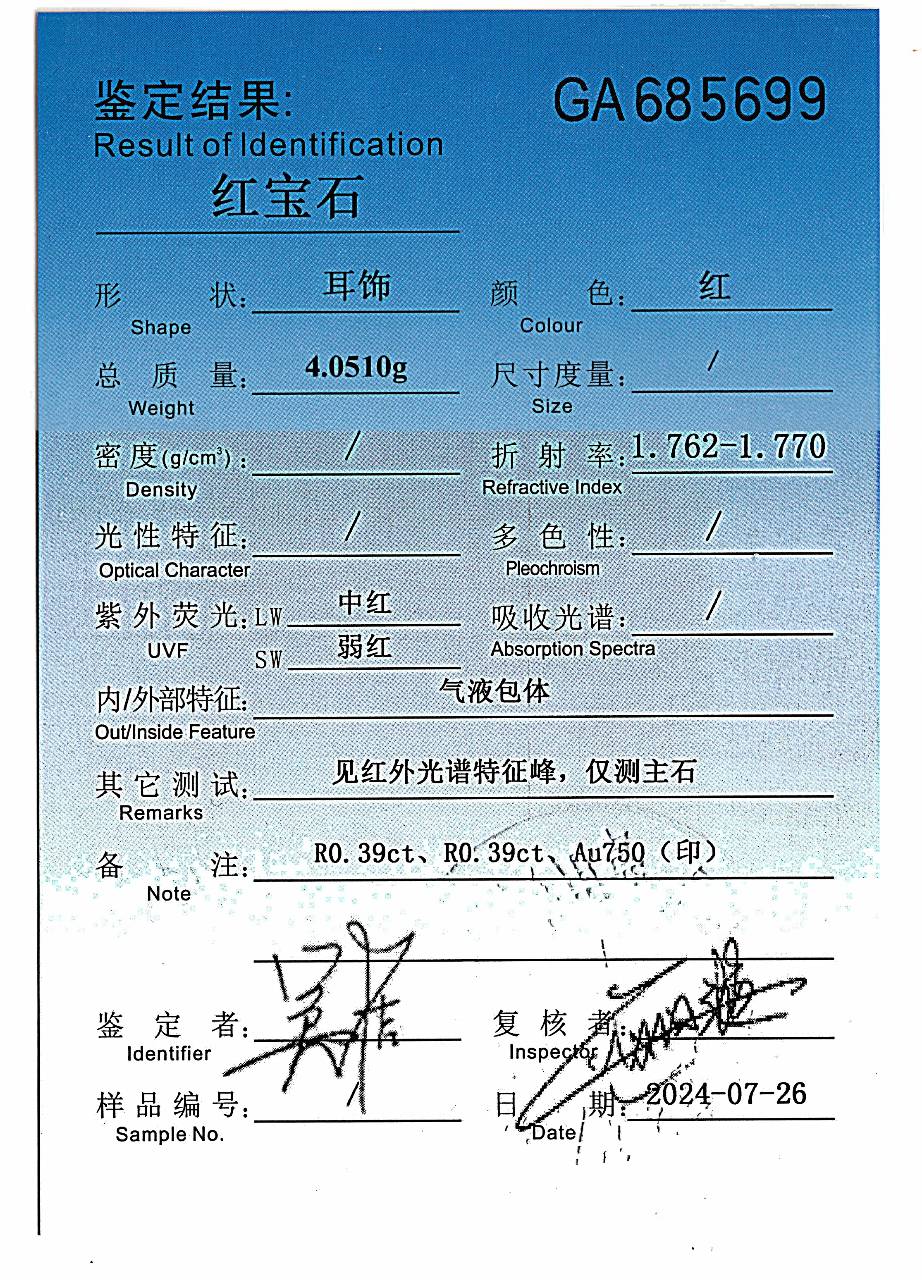 鉴定结果: GA685699
Result of Identification
红宝石
形状: 耳饰 颜色: 红
Shape Colour
总质量: 4.0510g 尺寸度量: /
Weight Size
密度(g/cm³): / 折射率: 1.762-1.770
Density Refractive Index
光性特征: / 多色性: /
Optical Character Pleochroism
紫外荧光: LW 中红 吸收光谱: /
UVF SW 弱红 Absorption Spectra
内/外部特征: 气液包体
Out/Inside Feature
其它测试: 见红外光谱特征峰，仅测主石
Remarks
备注: R0.39ct、R0.39ct、Au750（印）
Note
鉴定者: 复核者:
Identifier Inspector
样品编号: / 日期: 2024-07-26
Sample No. Date